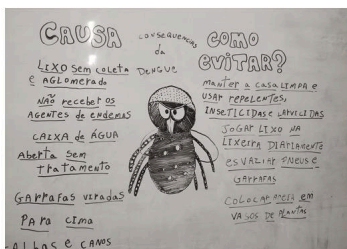 CAUSA
LIXO Sem coleta
e AGLOMERADO
NÃO receber OS
AGENTES de endemias
CAIXA de ÁGUA
Aberta Sem
tratamento
GARRAFAS viradas
PARA cima
CALHAS e CANOS
CONSEQUENCIAS
da
DENGUE
COMO
EVITAR?
MANTER A CASA LIMPA e
USAR REPELENTES,
INSETICIDAS E LARVICIDAS
JOGAR LIXO NA
LIXEIRA DIARIAMENTE
ESVAZIAR PNEUS E
GARRAFAS
COLOCAR AREIA em
VASOS DE PLANTAS